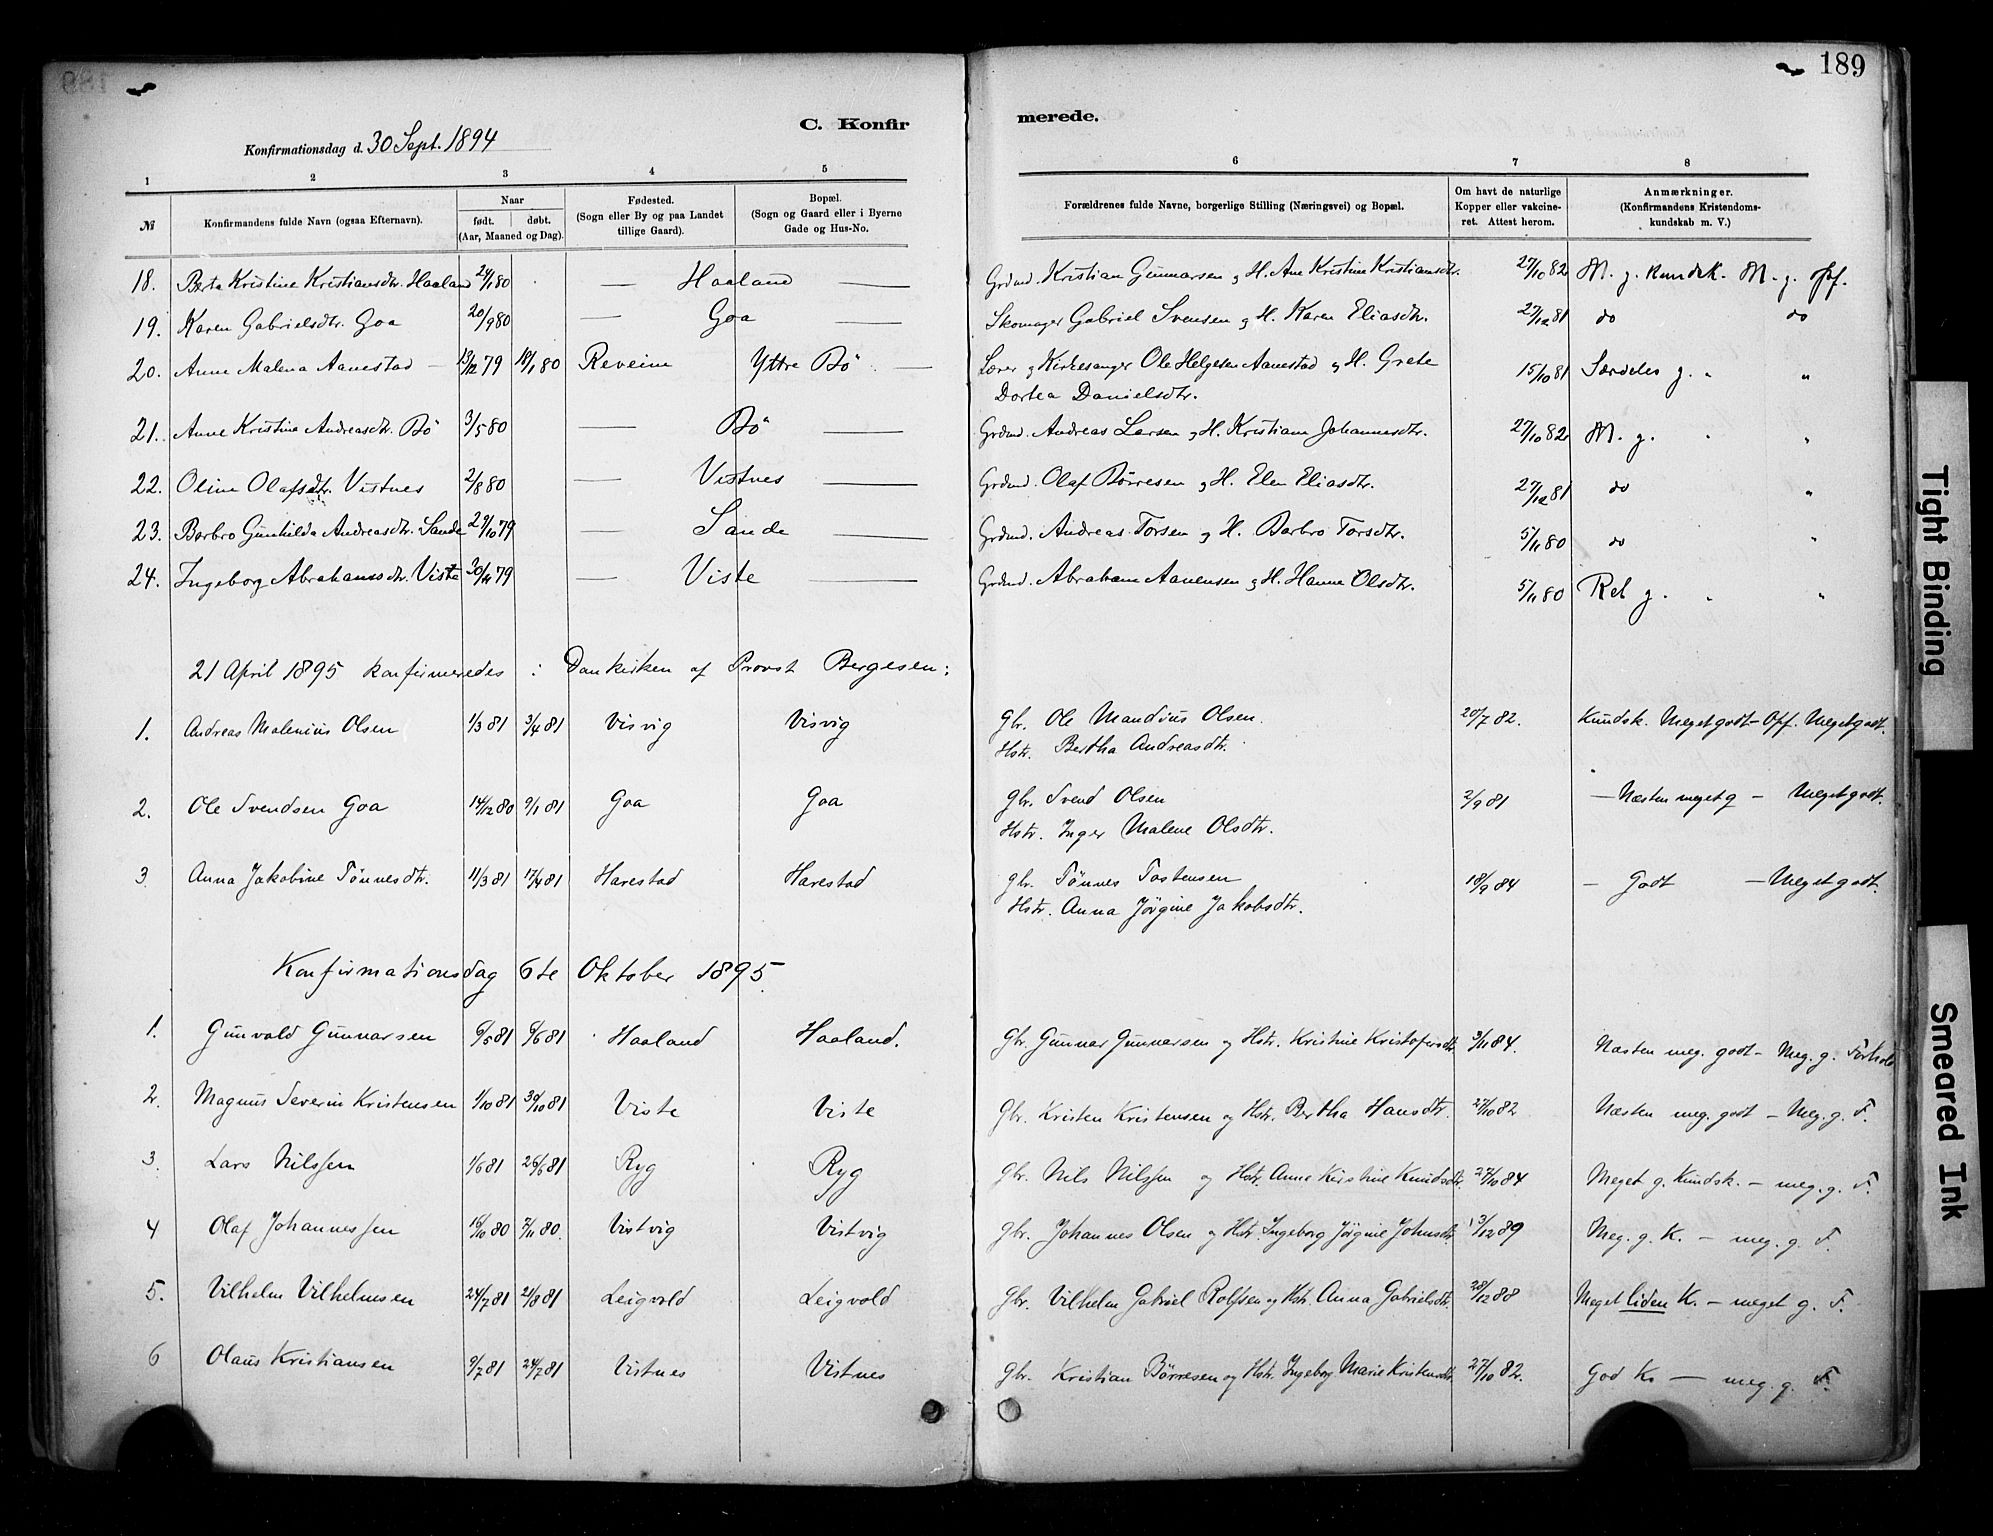 189
C. Konfirmerede.
Konfirmationsdag d. 30 Sept. 1894
1 2 3 4 5 6 7 8
№ Konfirmandens fulde Navn (ogsaa Efternavn). Naar født. døbt. (Aar, Maaned og Dag). Fødested. (Sogn eller By og paa Landet tillige Gaard). Bopæl. (Sogn og Gaard eller i Byerne Gade og Hus-No. Forældrenes fulde Navne, borgerlige Stilling (Næringsvei) og Bopæl. Om havt de naturlige Kopper eller vakcineret. Attest herom. Anmærkninger. (Konfirmandens Kristendomskundskab m. V.)
18. Berta Kristine Kristiansdtr. Haaland 24/1 80 — Haaland — Grdmd. Kristian Gunnarsen og H. Ane Kristine Kristiansdtr. 27/10 82 M. g. Kundsk. M. g. opf.
19. Karen Gabrielsdtr. Goa 20/9 80 — Goa — Skomager Gabriel Svensen og H. Karen Eliasdtr. 27/12 81 do do
20. Anne Malena Aanestad — 13/12 79 18/1 80 Reveim Yttre Bö — Lærer og Kirkesanger Ole Helgesen Aanestad og H. Grete 15/10 81 Særdeles g. " "
Dortea Danielsdtr.
21. Anne Kristine Andreasdtr. Bö 3/5 80 — Bö — Grdmd. Andreas Larsen og H. Kristiane Johannesdtr. 27/10 82 M. g. " "
22. Oline Olafsdtr. Vistnes 2/8 80 — Vistnes — Grdmd. Olaf Börresen og H. Elen Eliasdtr. 27/12 81 do "
23. Barbro Gunhilda Andreasdtr. Sande 29/10 79 — Sande — Grdmd. Andreas Torsen og H. Barbro Torsdtr. 5/11 80 do "
24. Ingeborg Abrahamsdtr. Viste 30/11 79 — Viste — Grdmd. Abraham Aanensen og H. Hanne Olsdtr. 5/11 80 Ret g. " "
21 April 1895 konfirmeredes i Domkirken af Provst Bergesen:
1. Andreas Malenius Olsen 1/3 81 3/4 81 Visvig Visvig Gbr. Ole Mandius Olsen. 20/7 82. Kundsk. Meget godt – Opf. Meget godt.
Hstr. Bertha Andreasdtr.
2. Ole Svendsen Goa 14/12 80 9/1 81 Goa Goa Gbr. Svend Olsen 2/9 81 — Næsten meget g — Meget godt.
Hstr. Inger Malene Olsdtr.
3 Anna Jakobine Tönnesdtr. 11/3 81 17/4 81 Harestad Harestad gbr. Tönnes Tostensen 18/9 84 — Godt — Meget godt.
Hstr. Anna Jörgine Jakobsdtr.
Konfirmationsdag 6te Oktober 1895
1. Gunvald Gunnarsen 6/5 81 6/6 81 Haaland Haaland. Gbr. Gunnar Gunnarsen og Hstr. Kristine Kristofersdtr 3/11 84. Næsten meg. godt – Meg. g. Forhold
2. Magnus Severin Kristensen 1/10 81 30/10 81 Viste Viste Gbr. Kristen Kristensen og Hstr. Bertha Hansdtr. 27/10 82 Næsten meg. godt – Meg. g. F.
3. Lars Nilssen 1/6 81 26/6 81 Ryg Ryg Gbr. Nils Nilssen og Hstr. Anne Kirstine Knudsdtr. 27/10 84 Meget g. Kundsk. – meg. g. F.
4 Olaf Johannessen 16/10 80 7/11 80. Vistvig Vistvig Gbr. Johannes Olsen og Hstr. Ingeborg Jörgine Johnsdtr. 13/12 89 Meg. g. K. – meg. g. F.
5. Vilhelm Vilhelmsen 24/7 81 21/8 81 Leigvold Leigvold Gbr. Vilhelm Gabriel Rolfsen og Hstr. Anna Gabrielsdtr. 28/12 88 Meget liden K. – meget g. F.
6 Olaus Kristiansen 9/7 81 24/7 81 Vistnes Vistnes Gbr. Kristian Börresen og Hstr. Ingeborg Marie Kristensdtr. 27/10 82. God K. — meg. g. F.
Tight Binding
Smeared Ink